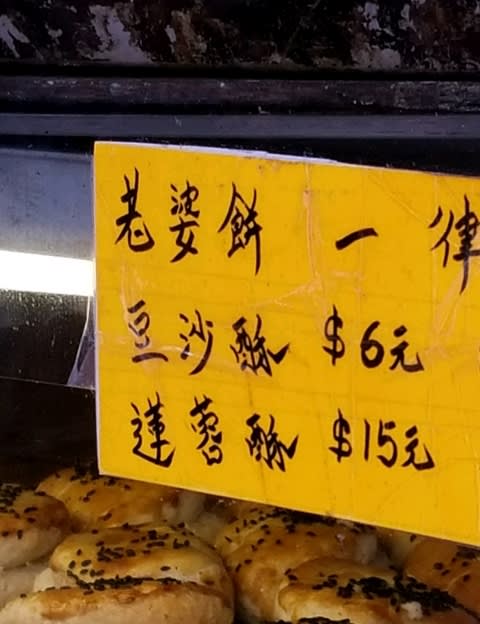 老婆餅 一律
豆沙酥 $6元
蓮蓉酥 $15元